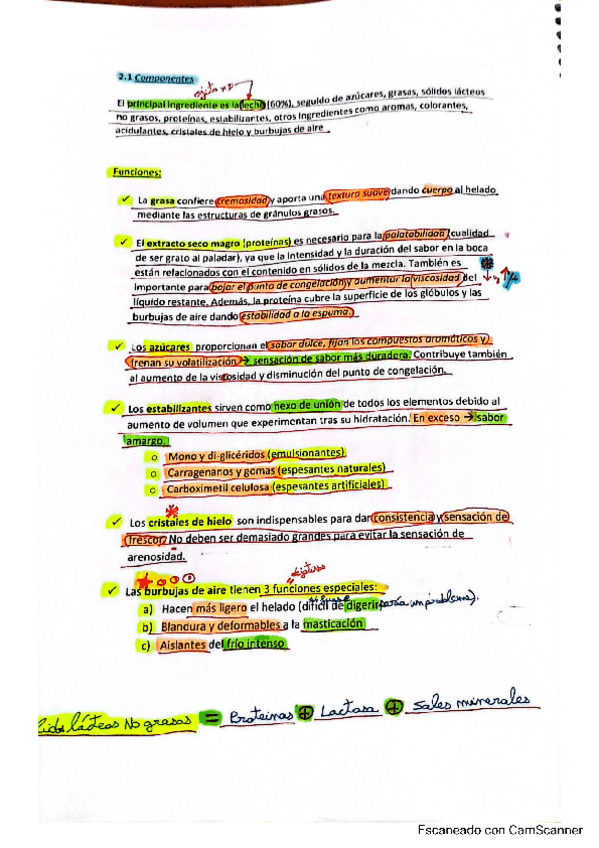 2.1 Componentes
El principal ingrediente es la leche (60%), seguido de azúcares, grasas, sólidos lácteos
no grasos, proteínas, estabilizantes, otros ingredientes como aromas, colorantes,
acidulantes, cristales de hielo y burbujas de aire
Funciones:
✓ La grasa confiere cremosidad y aporta una textura suave dando cuerpo al helado
mediante las estructuras de gránulos grasos.
✓ El extracto seco magro (proteínas) es necesario para la palatabilidad (cualidad
de ser grato al paladar), ya que la intensidad y la duración del sabor en la boca
están relacionados con el contenido en sólidos de la mezcla. También es
importante para bajar el punto de congelación y aumentar la viscosidad del
líquido restante. Además, la proteína cubre la superficie de los glóbulos y las
burbujas de aire dando estabilidad a la espuma.
✓ Los azúcares proporcionan el sabor dulce, fijan los compuestos aromáticos y
frenan su volatilización → sensación de sabor más duradera. Contribuye también
al aumento de la viscosidad y disminución del punto de congelación.
✓ Los estabilizantes sirven como nexo de unión de todos los elementos debido al
aumento de volumen que experimentan tras su hidratación. En exceso → sabor
amargo.
o Mono y di-glicéridos (emulsionantes)
o Carragenanos y gomas (espesantes naturales)
o Carboximetil celulosa (espesantes artificiales)
✓ Los cristales de hielo son indispensables para dar consistencia y sensación de
frescor. No deben ser demasiado grandes para evitar la sensación de
arenosidad.
✓ Las burbujas de aire tienen 3 funciones especiales:
a) Hacen más ligero el helado (difícil de digerir sería un problema).
b) Blandura y deformables a la masticación
c) Aislantes del frío intenso
lácteos No grasos = Proteinas + Lactosa + Sales minerales
Escaneado con CamScanner